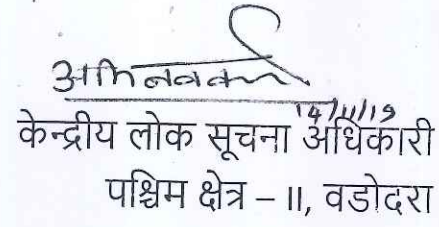 14/11/19
केन्द्रीय लोक सूचना अधिकारी
पश्चिम क्षेत्र – II, वडोदरा